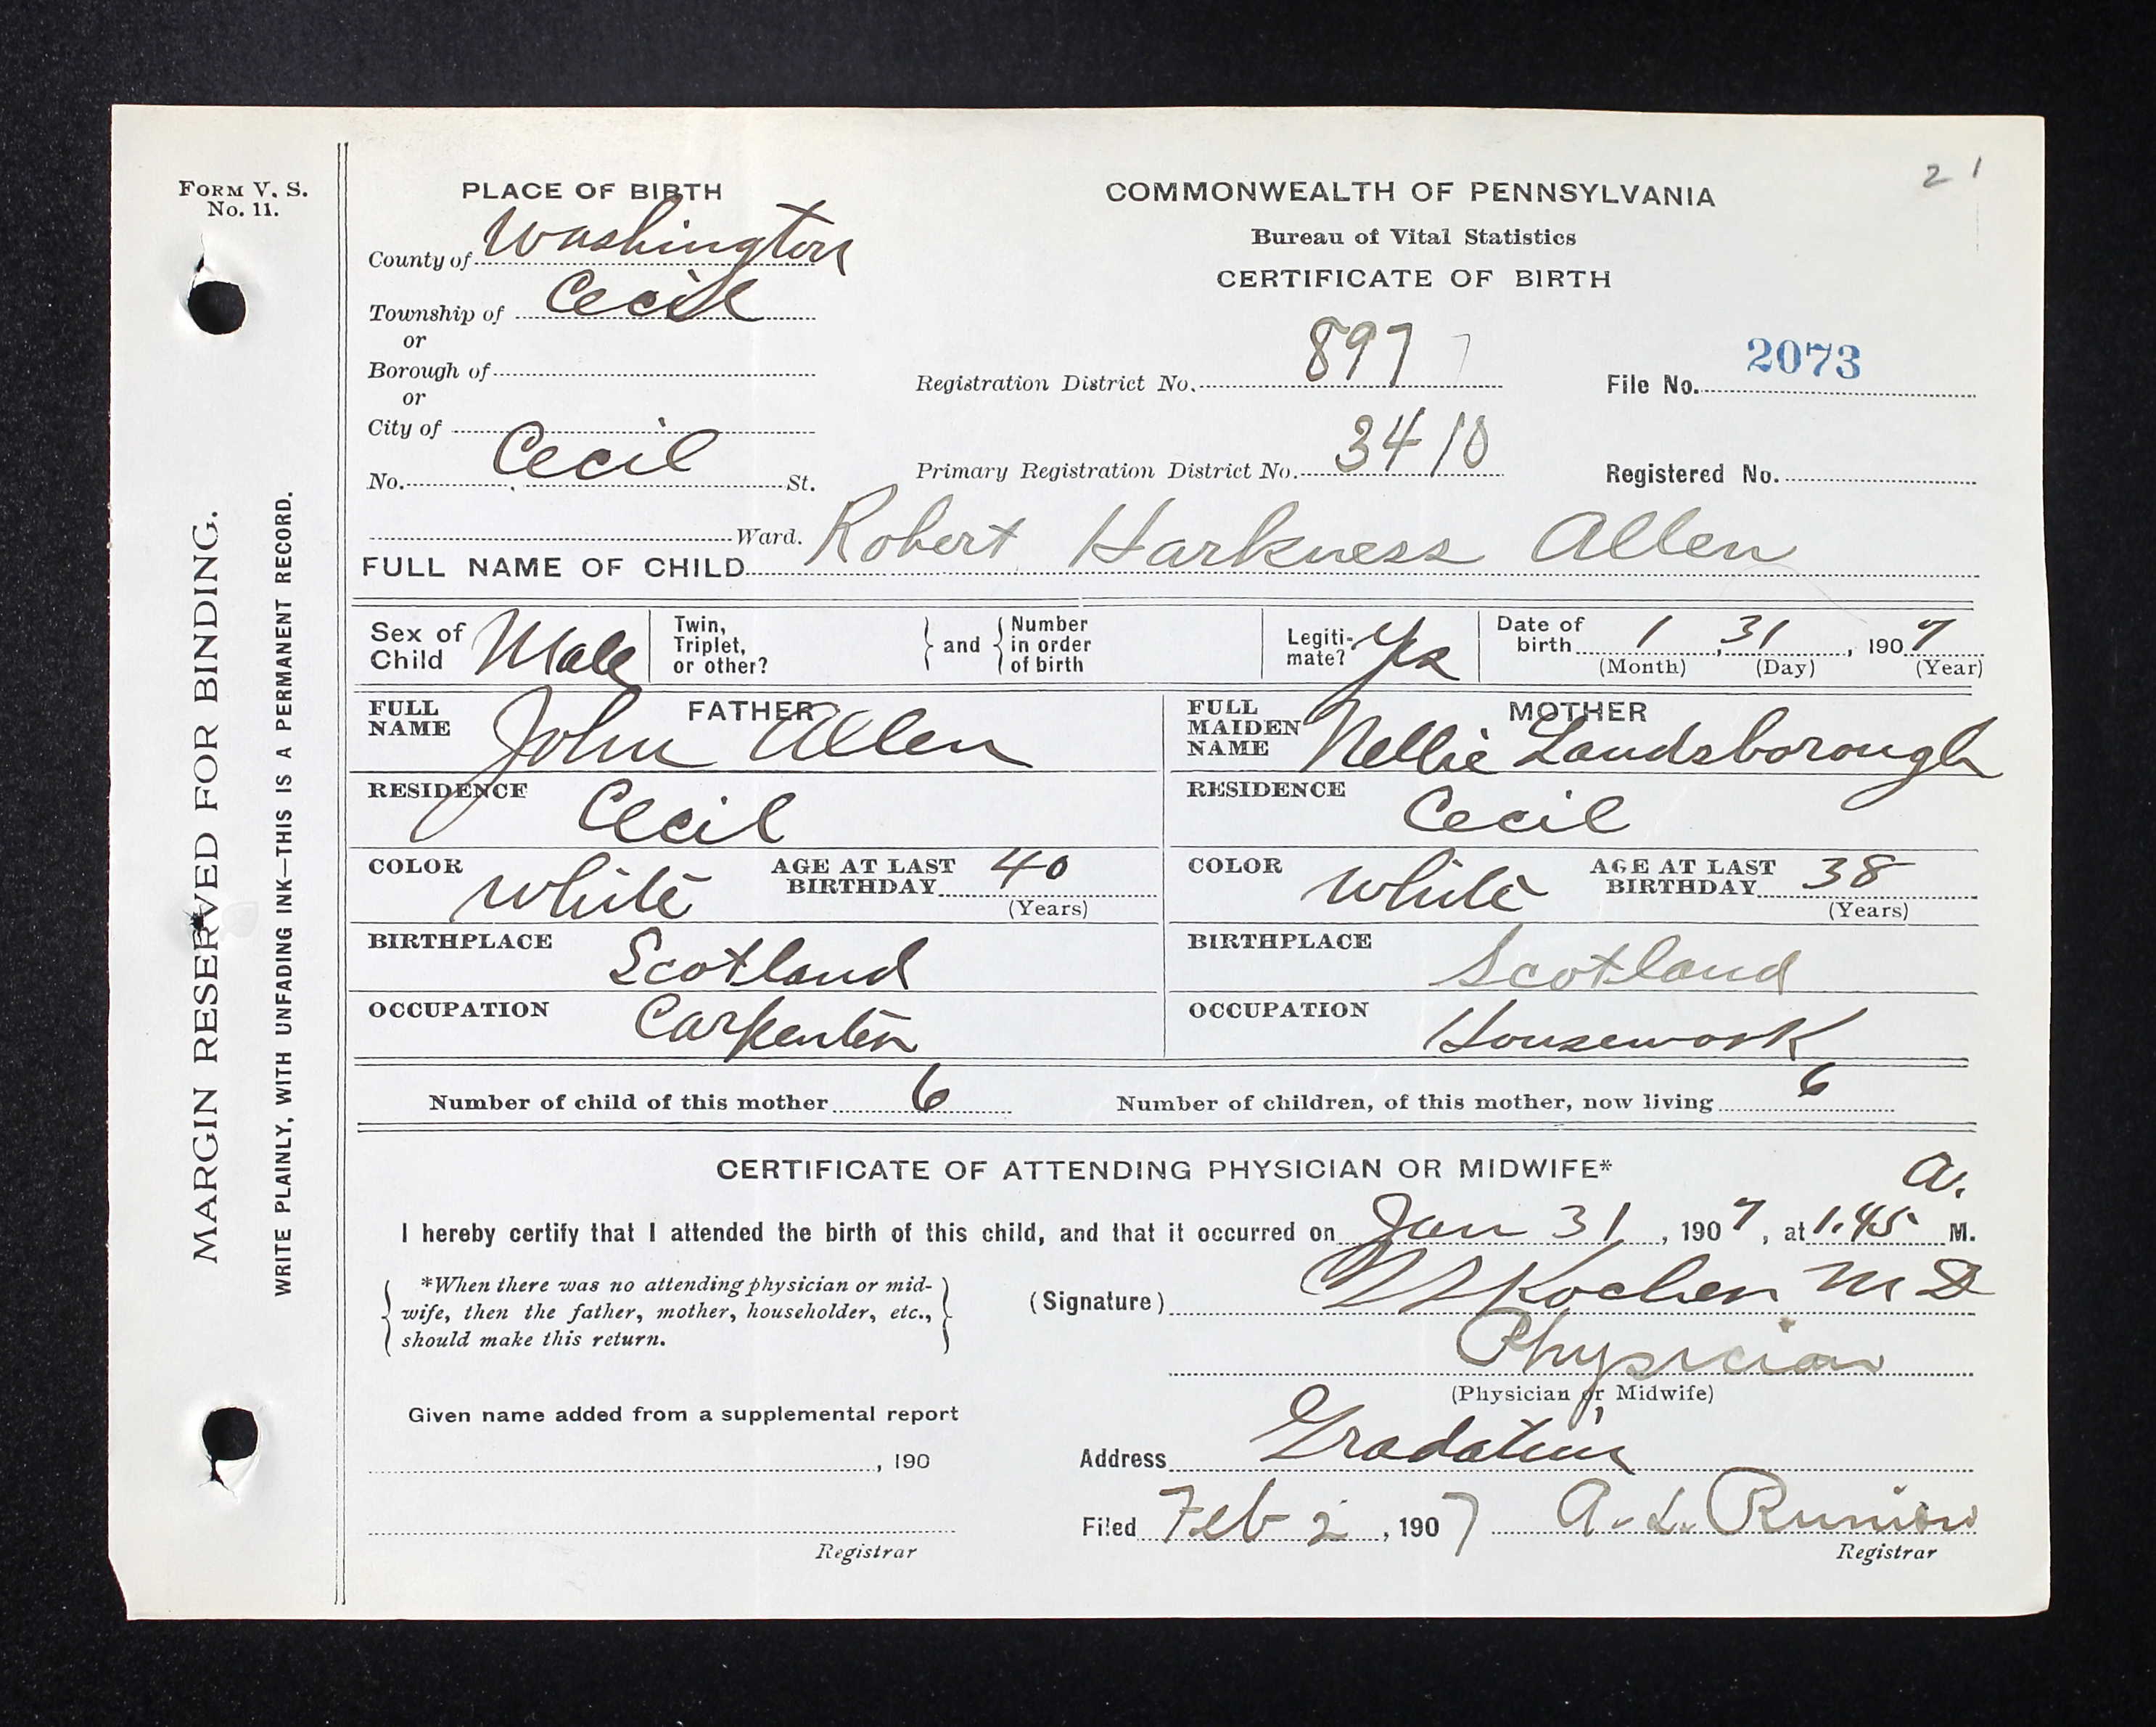 FORM V. S.
No. 11.
MARGIN RESERVED FOR BINDING.
WRITE PLAINLY, WITH UNFADING INK—THIS IS A PERMANENT RECORD.
21
PLACE OF BIRTH
County of Washington
Township of Cecil
or
Borough of
or
City of
No. Cecil St.
Ward.
COMMONWEALTH OF PENNSYLVANIA
Bureau of Vital Statistics
CERTIFICATE OF BIRTH
Registration District No. 897 7
File No. 2073
Primary Registration District No. 3410
Registered No.
FULL NAME OF CHILD Robert Harkness Allen
Sex of Child Male
Twin, Triplet, or other?
and
Number in order of birth
Legitimate? Yes
Date of birth 1, 31, 1907
(Month) (Day) (Year)
FATHER
FULL NAME John Allen
RESIDENCE Cecil
COLOR White AGE AT LAST BIRTHDAY 40
(Years)
BIRTHPLACE Scotland
OCCUPATION Carpenter
MOTHER
FULL MAIDEN NAME Nellie Landsborough
RESIDENCE Cecil
COLOR White AGE AT LAST BIRTHDAY 38
(Years)
BIRTHPLACE Scotland
OCCUPATION Housework
Number of child of this mother 6 Number of children, of this mother, now living 6
CERTIFICATE OF ATTENDING PHYSICIAN OR MIDWIFE*
I hereby certify that I attended the birth of this child, and that it occurred on Jan 31, 1907, at 1.45 a. M.
*When there was no attending physician or mid-
wife, then the father, mother, householder, etc.,
should make this return.
(Signature) Kochen M D
Physician
(Physician or Midwife)
Given name added from a supplemental report
, 190
Registrar
Address
Filed Feb 2, 1907 A. L. Runion
Registrar